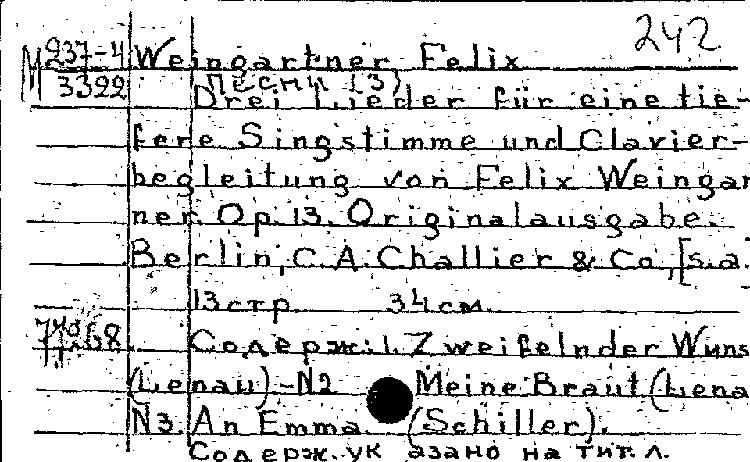 242
М 937-4 Weingartner Felix
3392 Песни [3]
Drei Lieder für eine tie-
fere Singstimme und Clavier-
begleitung von Felix Weingar
ner. Op. 13. Originalausgabe.
Berlin, C.A. Challier & Co, [s.a.]
13 стр. 34 см.
Содерж.: 1. Zweifelnder Wuns
(Lenau) - N2 Meine Braut (Lena
N3. An Emma (Schiller).
Содерж. указано на тит. л.